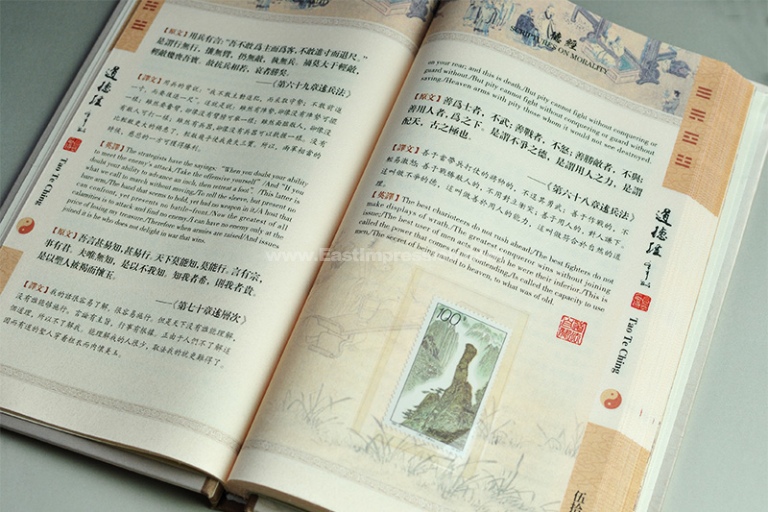 【原文】用兵有言：“吾不敢為主而為客，不敢進寸而退尺。”
是謂行無行，攘無臂，扔無敵，執無兵。禍莫大于輕敵，
輕敵幾喪吾寶，故抗兵相若，哀者勝矣。
——《第六十九章述兵法》
【譯文】
【英譯】The strategists have the sayings: "When you doubt your ability
to meet the enemy's attack,/Take the offensive yourself" /And "If you
doubt your ability to advance an inch, then retreat a foot". /This latter is
what we call to march without moving,/To roll the sleeve, but present no
bare arm,/The hand that seems to hold, yet had no weapon in it,/A host that
can confront, yet presents no battle-front./Now the greatest of all
calamities is to attack and find no enemy./I can have no enemy only at the
price of losing my treasure./Therefore when armies are raised/And issues
joined it is he who does not delight in war that wins.
【原文】吾言甚易知，甚易行。天下莫能知，莫能行。言有宗，
事有君，夫唯無知，是以不我知。知我者希，則我者貴。
是以聖人被褐而懷玉。
——《第七十章述層次》
【譯文】我的話很容易了解，很容易施行，但是天下没有誰能理解，
没有誰能够施行。言論有主旨，行事有根據。正由于人們不了解這
個道理，所以不了解我。能理解我的人很少，取法我的就更難得了。
因而有道的聖人穿着粗衣而内懷美玉。
道德經
Tao Te Ching
德經
SCRIPTURES ON MORALITY
on your rear; and this is death./But pity cannot fight without conquering or
guard without/But pity cannot fight without conquering or guard without
saving./Heaven arms with pity those whom it would not see destroyed.
【原文】善爲士者，不武；善戰者，不怒；善勝敵者，不與；
善用人者，爲之下。是謂不爭之德，是謂用人之力，是謂
配天，古之極也。
——《第六十八章述兵法》
【譯文】
【英譯】The best charioteers do not rush ahead;/The best fighters do not
make displays of wrath./The greatest conqueror wins without joining
issue;/The best user of men acts as though he were their inferior./This is
called the power that comes of not contending,/Is called the capacity to use
men,/The secret of being mated to heaven, to what was of old.
100
道德經
Tao Te Ching
伍拾
www.Eastimpress